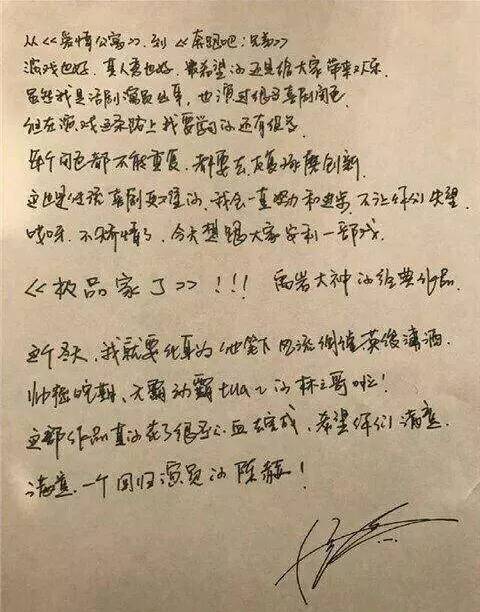 从《爱情公寓》,到《奔跑吧!兄弟》
游戏也好,真人秀也好,最希望的还是给大家带来欢乐
虽然我是话剧演员出身,也演过很多喜剧角色
但在演戏这条路上我要学的还有很多
每个角色都不能重复,都要去反复琢磨创新
这也是传说喜剧更难的,我会一直努力和进步,不让你们失望
哎呀,不矫情了,今天想跟大家安利一部戏
《极品家丁》!!!禹岩大神的经典作品
这个冬天,我就要化身为他笔下风流倜傥英俊潇洒
帅裂苍穹,无霸动霸tua~的林三哥啦!
这部作品真的花了很多心血去完成,希望你们满意
满意,一个回归演员的陈赫!